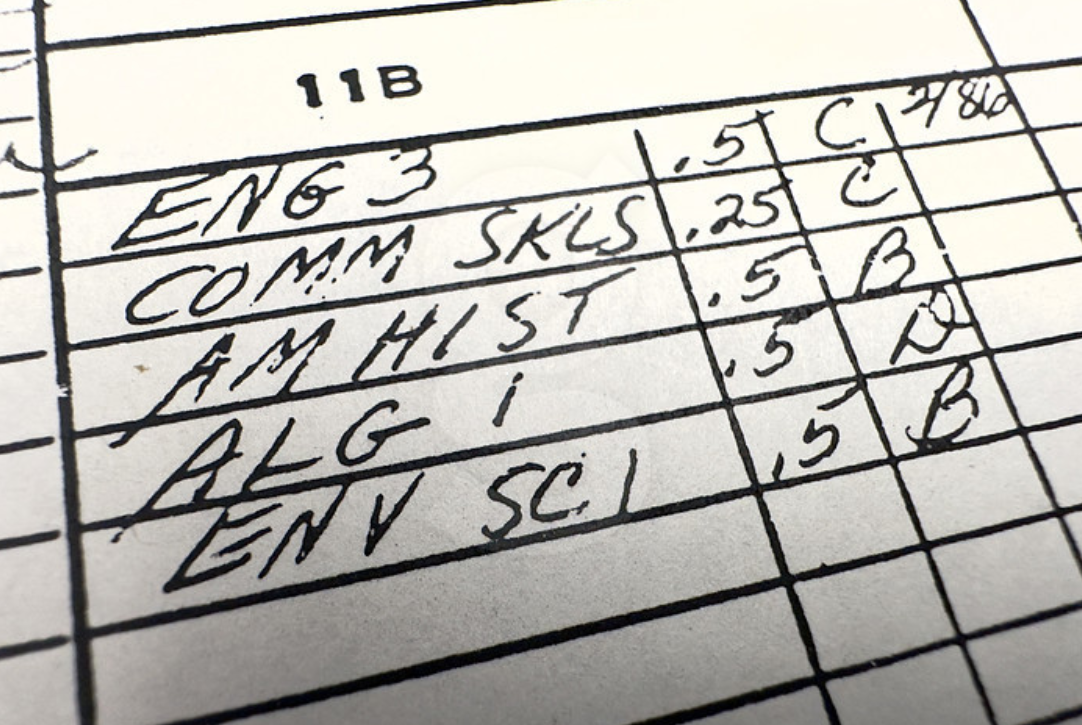 11B
ENG 3 .5 C 2/86
COMM SKLS .25 C
AM HIST .5 B
ALG 1 .5 D
ENV SCI .5 B